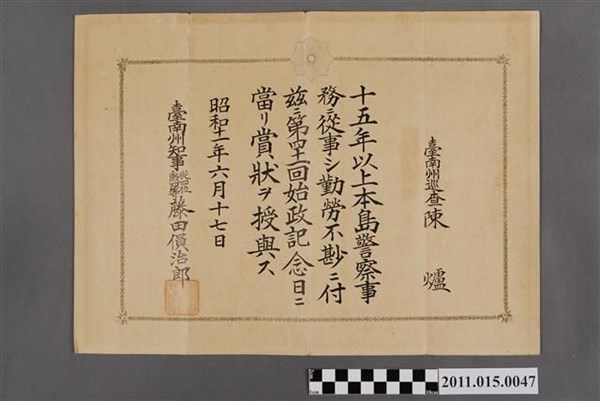 臺南州巡查 陳 爐
十五年以上本島警察事
務ニ從事シ勤勞不尠ニ付
茲ニ第四十一回始政記念日ニ
當リ賞狀ヲ授與ス
昭和十一年六月十七日
臺南州知事從四位勳四等藤田傊治郎
2011.015.0047